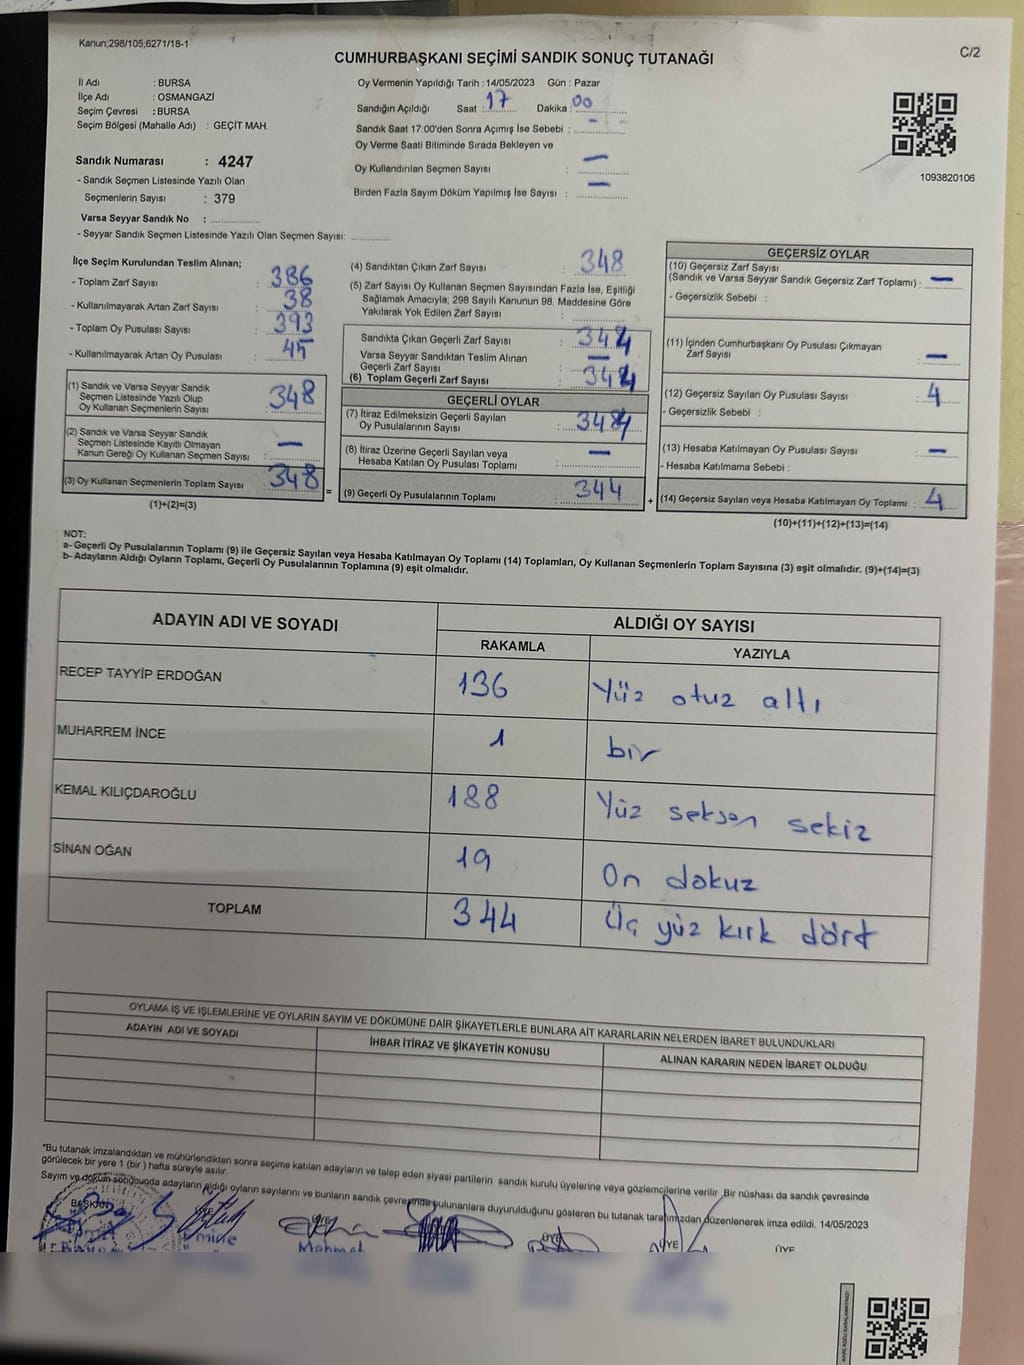 Kanun;298/105;6271/18-1
C/2
CUMHURBAŞKANI SEÇİMİ SANDIK SONUÇ TUTANAĞI
İl Adı : BURSA
İlçe Adı : OSMANGAZİ
Seçim Çevresi : BURSA
Seçim Bölgesi (Mahalle Adı) : GEÇİT MAH.
Sandık Numarası : 4247
- Sandık Seçmen Listesinde Yazılı Olan
Seçmenlerin Sayısı : 379
Varsa Seyyar Sandık No : ..............
- Seyyar Sandık Seçmen Listesinde Yazılı Olan Seçmen Sayısı: ............
Oy Vermenin Yapıldığı Tarih : 14/05/2023 Gün : Pazar
Sandığın Açıldığı Saat : 17 Dakika : 00
Sandık Saat 17:00'den Sonra Açımış İse Sebebi : -
Oy Verme Saati Bitiminde Sırada Bekleyen ve
Oy Kullandırılan Seçmen Sayısı : -
Birden Fazla Sayım Döküm Yapılmış İse Sayısı : -
1093820106
İlçe Seçim Kurulundan Teslim Alınan;
- Toplam Zarf Sayısı : 386
- Kullanılmayarak Artan Zarf Sayısı : 38
- Toplam Oy Pusulası Sayısı : 393
- Kullanılmayarak Artan Oy Pusulası : 45
(1) Sandık ve Varsa Seyyar Sandık
Seçmen Listesinde Yazılı Olup
Oy Kullanan Seçmenlerin Sayısı : 348
(2) Sandık ve Varsa Seyyar Sandık
Seçmen Listesinde Kayıtlı Olmayan
Kanun Gereği Oy Kullanan Seçmen Sayısı : -
(3) Oy Kullanan Seçmenlerin Toplam Sayısı : 348
(1)+(2)=(3)
=
(4) Sandıktan Çıkan Zarf Sayısı : 348
(5) Zarf Sayısı Oy Kullanan Seçmen Sayısından Fazla İse, Eşitliği
Sağlamak Amacıyla; 298 Sayılı Kanunun 98. Maddesine Göre
Yakılarak Yok Edilen Zarf Sayısı :
Sandıkta Çıkan Geçerli Zarf Sayısı : 344
Varsa Seyyar Sandıktan Teslim Alınan
Geçerli Zarf Sayısı : -
(6) Toplam Geçerli Zarf Sayısı : 344
GEÇERLİ OYLAR
(7) İtiraz Edilmeksizin Geçerli Sayılan
Oy Pusulalarının Sayısı : 344
(8) İtiraz Üzerine Geçerli Sayılan veya
Hesaba Katılan Oy Pusulası Toplamı : -
(9) Geçerli Oy Pusulalarının Toplamı : 344
+
GEÇERSİZ OYLAR
(10) Geçersiz Zarf Sayısı
(Sandık ve Varsa Seyyar Sandık Geçersiz Zarf Toplamı) : -
- Geçersizlik Sebebi :
(11) İçinden Cumhurbaşkanı Oy Pusulası Çıkmayan
Zarf Sayısı : -
(12) Geçersiz Sayılan Oy Pusulası Sayısı : 4
- Geçersizlik Sebebi :
(13) Hesaba Katılmayan Oy Pusulası Sayısı : -
- Hesaba Katılmama Sebebi :
(14) Geçersiz Sayılan veya Hesaba Katılmayan Oy Toplamı : 4
(10)+(11)+(12)+(13)=(14)
NOT:
a- Geçerli Oy Pusulalarının Toplamı (9) ile Geçersiz Sayılan veya Hesaba Katılmayan Oy Toplamı (14) Toplamları, Oy Kullanan Seçmenlerin Toplam Sayısına (3) eşit olmalıdır. (9)+(14)=(3)
b- Adayların Aldığı Oyların Toplamı, Geçerli Oy Pusulalarının Toplamına (9) eşit olmalıdır.
ADAYIN ADI VE SOYADI ALDIĞI OY SAYISI
RAKAMLA YAZIYLA
RECEP TAYYİP ERDOĞAN 136 Yüz otuz altı
MUHARREM İNCE 1 bir
KEMAL KILIÇDAROĞLU 188 Yüz seksen sekiz
SİNAN OĞAN 19 On dokuz
TOPLAM 344 Üç yüz kırk dört
OYLAMA İŞ VE İŞLEMLERİNE VE OYLARIN SAYIM VE DÖKÜMÜNE DAİR ŞİKAYETLERLE BUNLARA AİT KARARLARIN NELERDEN İBARET BULUNDUKLARI
ADAYIN ADI VE SOYADI İHBAR İTİRAZ VE ŞİKAYETİN KONUSU ALINAN KARARIN NEDEN İBARET OLDUĞU
*Bu tutanak imzalandıktan ve mühürlendikten sonra seçime katılan adayların ve talep eden siyasi partilerin sandık kurulu üyelerine veya gözlemcilerine verilir .Bir nüshası da sandık çevresinde
görülecek bir yere 1 (bir ) hafta süreyle asılır.
Sayım ve döküm sonucunda adayların aldığı oyların sayılarını ve bunların sandık çevresinde bulunanlara duyurulduğunu gösteren bu tutanak tarafımızdan düzenlenerek imza edildi. 14/05/2023
BAŞKAN ÜYE ÜYE ÜYE ÜYE
Emine